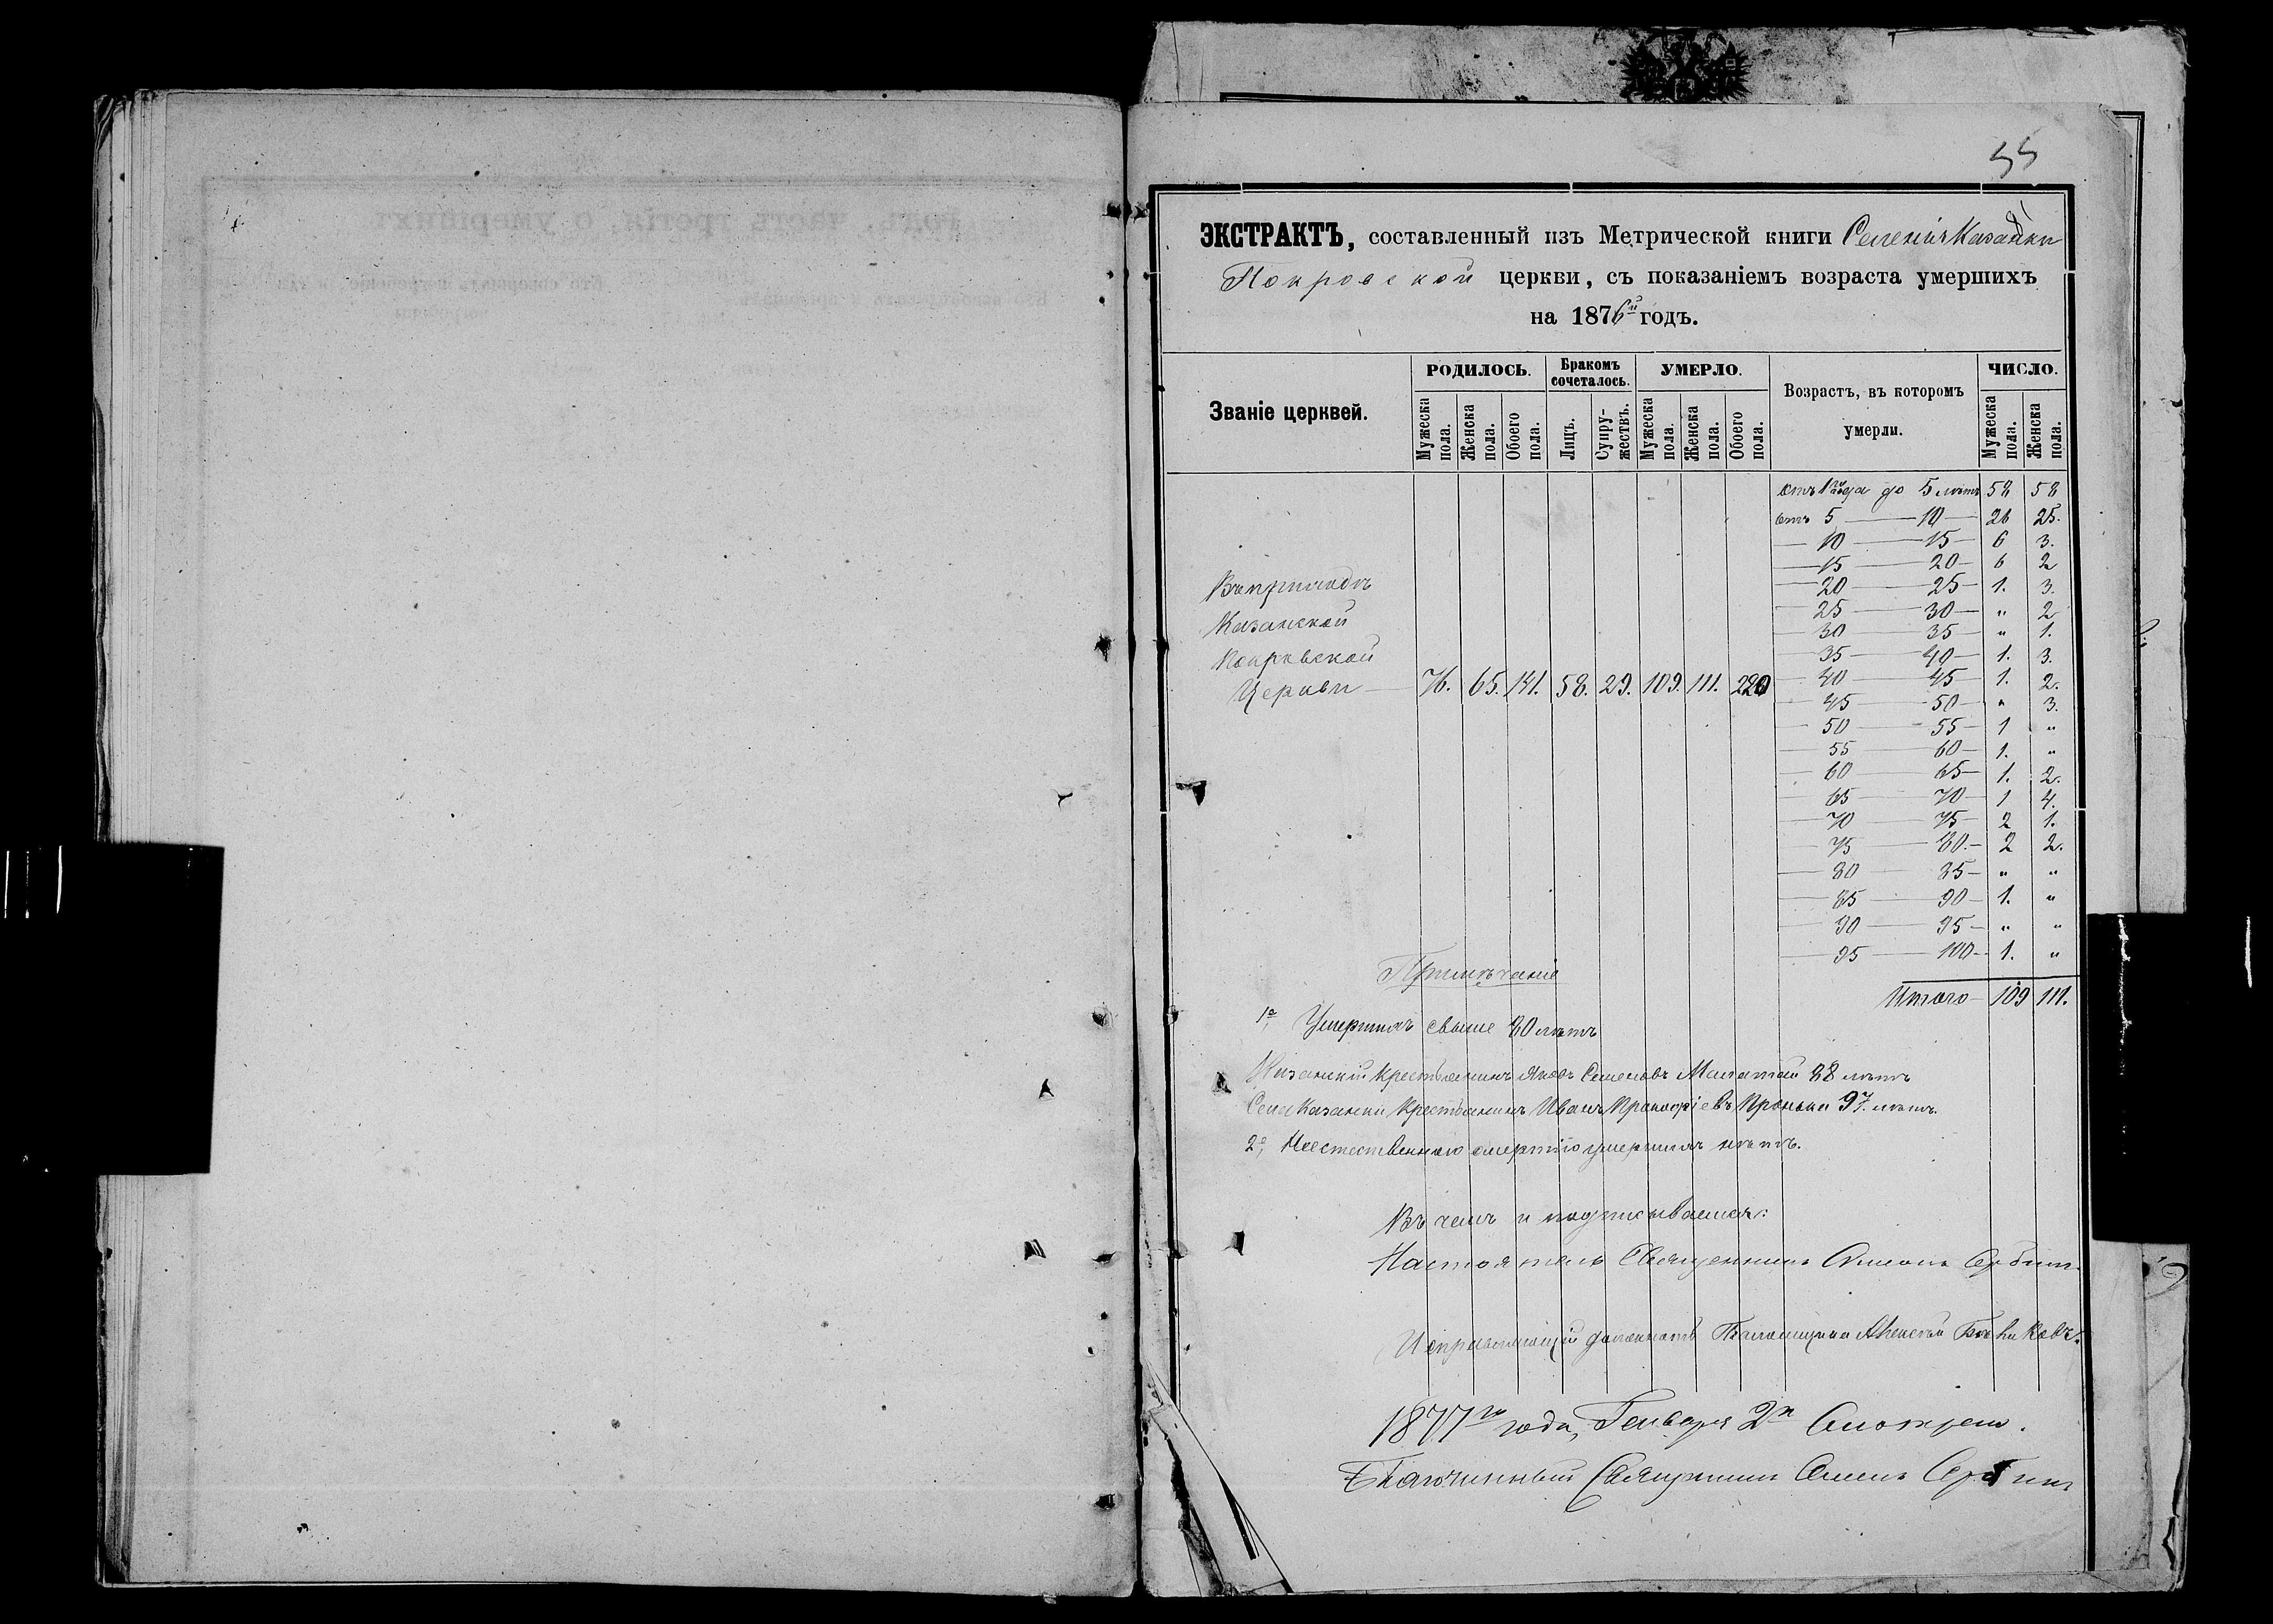 55
ЭКСТРАКТЪ, составленный изъ Метрической книги Селенія Казанки
Покровской церкви, съ показаніемъ возраста умершихъ
на 1876й годъ.
Званіе церквей.
РОДИЛОСЬ.
Мужеска пола.
Женска пола.
Обоего пола.
Бракомъ сочеталось.
Лицъ.
Супружествъ.
УМЕРЛО.
Мужеска пола.
Женска пола.
Обоего пола.
Возрастъ, въ которомъ умерли.
ЧИСЛО.
Мужеска пола.
Женска пола.
отъ 1 года до 5 лѣтъ 58 58
отъ 5 — 10 — 26 25.
— 10 — 15 — 6 3.
— 15 — 20 — 6 2
— 20 — 25 — 1. 3.
— 25 — 30 — " 2
— 30 — 35 — " 1.
— 35 — 40 — 1. 3.
— 40 — 45 — 1. 2.
— 45 — 50 — " 3.
— 50 — 55 — 1 "
— 55 — 60 — 1. "
— 60 — 65 — 1. 2.
— 65 — 70 — 1 4.
— 70 — 75 — 2 1.
— 75 — 80. — 2 2.
— 80 — 85 — " "
— 85 — 90 — 1. "
— 90 — 95 — " "
— 95 — 100 — 1. "
Итого — 109 111.
Въ приходѣ
Казанской
Покровской
Церкви — 76. 65. 141. 58. 29. 109. 111. 220
Примѣчаніе
1е, Умершихъ свыше 80 лѣтъ
Крестьянинъ Яковъ Семеновъ 88 лѣтъ
Села Казанки Крестьянинъ Иванъ Прокофіевъ Пронька 97. лѣтъ.
2е, Неестественною смертію умершихъ нѣтъ.
Въ чемъ и подписываемся:
Настоятель Священникъ Симеонъ
Исправляющій должность Псаломщика Алексѣй
1877го года, Генваря 2го Смотрелъ.
Благочинный Священникъ